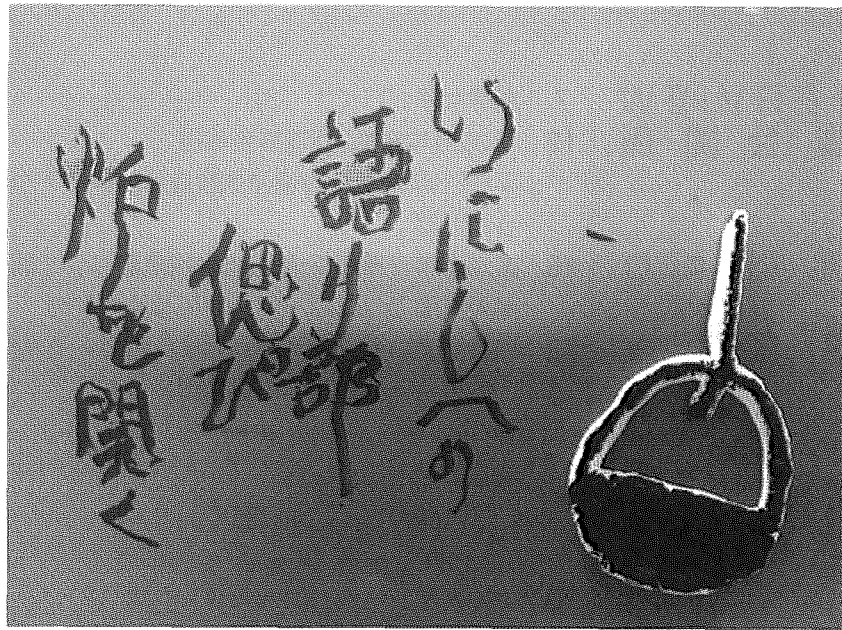 いにしへの
語り部
偲び
炉を開く